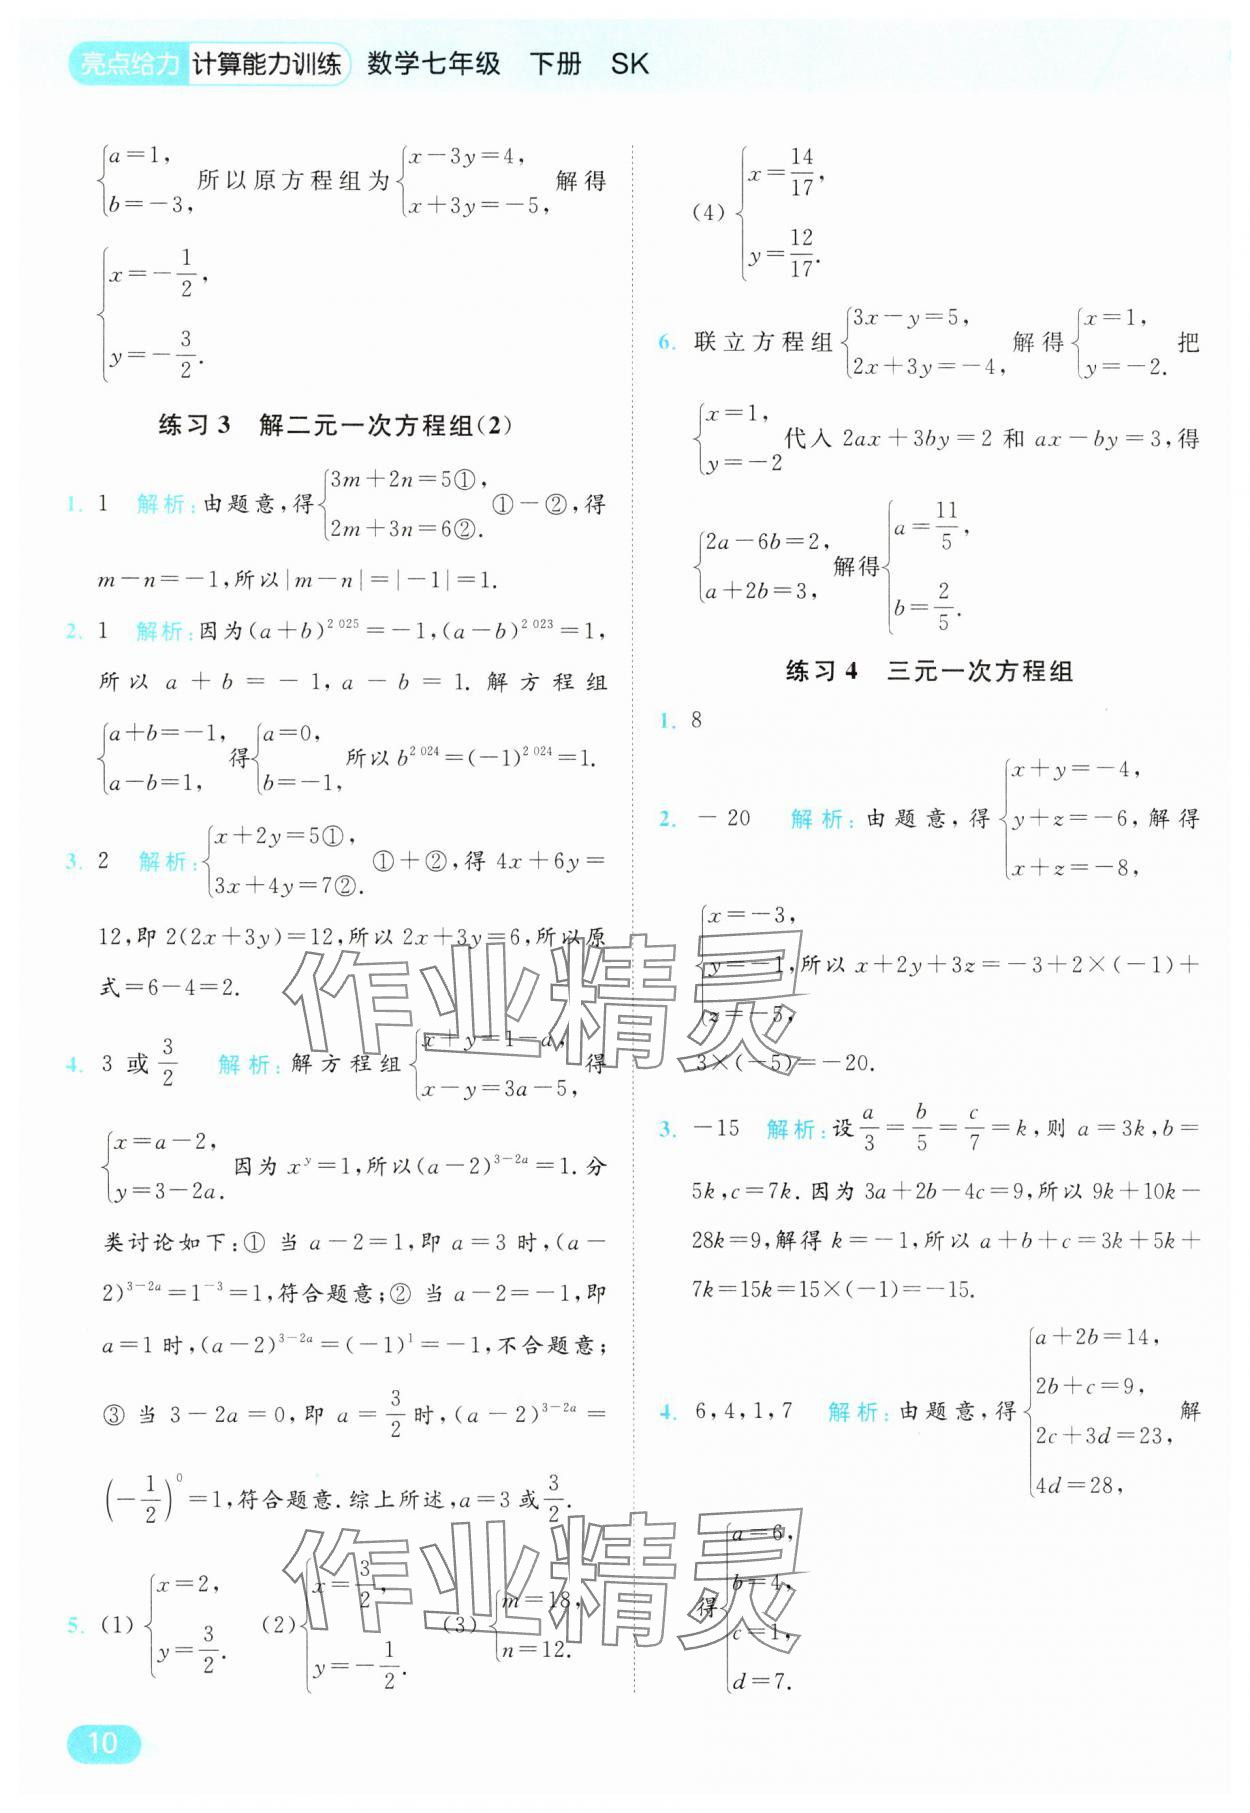 亮点给力 计算能力训练 数学七年级 下册 SK
{a=1, b=-3, 所以原方程组为{x-3y=4, x+3y=-5, 解得
{x=-1/2, y=-3/2.
练习3 解二元一次方程组(2)
1. 1 解析:由题意,得{3m+2n=5①, 2m+3n=6②. ①-②,得
m-n=-1,所以|m-n|=|-1|=1.
2. 1 解析:因为(a+b)^{2 025}=-1,(a-b)^{2 023}=1,
所以 a+b=-1,a-b=1.解方程组
{a+b=-1, a-b=1, 得{a=0, b=-1, 所以b^{2 024}=(-1)^{2 024}=1.
3. 2 解析:{x+2y=5①, 3x+4y=7②. ①+②,得 4x+6y=
12,即 2(2x+3y)=12,所以 2x+3y=6,所以原
式=6-4=2.
4. 3 或 3/2 解析:解方程组{x+y=1-a, x-y=3a-5, 得
{x=a-2, y=3-2a. 因为 x^y=1,所以(a-2)^{3-2a}=1.分
类讨论如下:① 当 a-2=1,即 a=3 时,(a-
2)^{3-2a}=1^{-3}=1,符合题意;② 当 a-2=-1,即
a=1 时,(a-2)^{3-2a}=(-1)^1=-1,不合题意;
③ 当 3-2a=0,即 a=3/2 时,(a-2)^{3-2a}=
(-1/2)^0=1,符合题意.综上所述,a=3 或 3/2.
5. (1) {x=2, y=3/2. (2) {x=3/2, y=-1/2. (3) {m=18, n=12.
(4) {x=14/17, y=12/17.
6. 联立方程组{3x-y=5, 2x+3y=-4, 解得{x=1, y=-2. 把
{x=1, y=-2 代入 2ax+3by=2 和 ax-by=3,得
{2a-6b=2, a+2b=3, 解得{a=11/5, b=2/5.
练习4 三元一次方程组
1. 8
2. -20 解析:由题意,得{x+y=-4, y+z=-6, x+z=-8, 解得
{x=-3, y=-1, z=-5, 所以 x+2y+3z=-3+2×(-1)+
3×(-5)=-20.
3. -15 解析:设 a/3=b/5=c/7=k,则 a=3k,b=
5k,c=7k.因为 3a+2b-4c=9,所以 9k+10k-
28k=9,解得 k=-1,所以 a+b+c=3k+5k+
7k=15k=15×(-1)=-15.
4. 6,4,1,7 解析:由题意,得{a+2b=14, 2b+c=9, 2c+3d=23, 4d=28, 解
得{a=6, b=4, c=1, d=7.
作业精灵
作业精灵
10